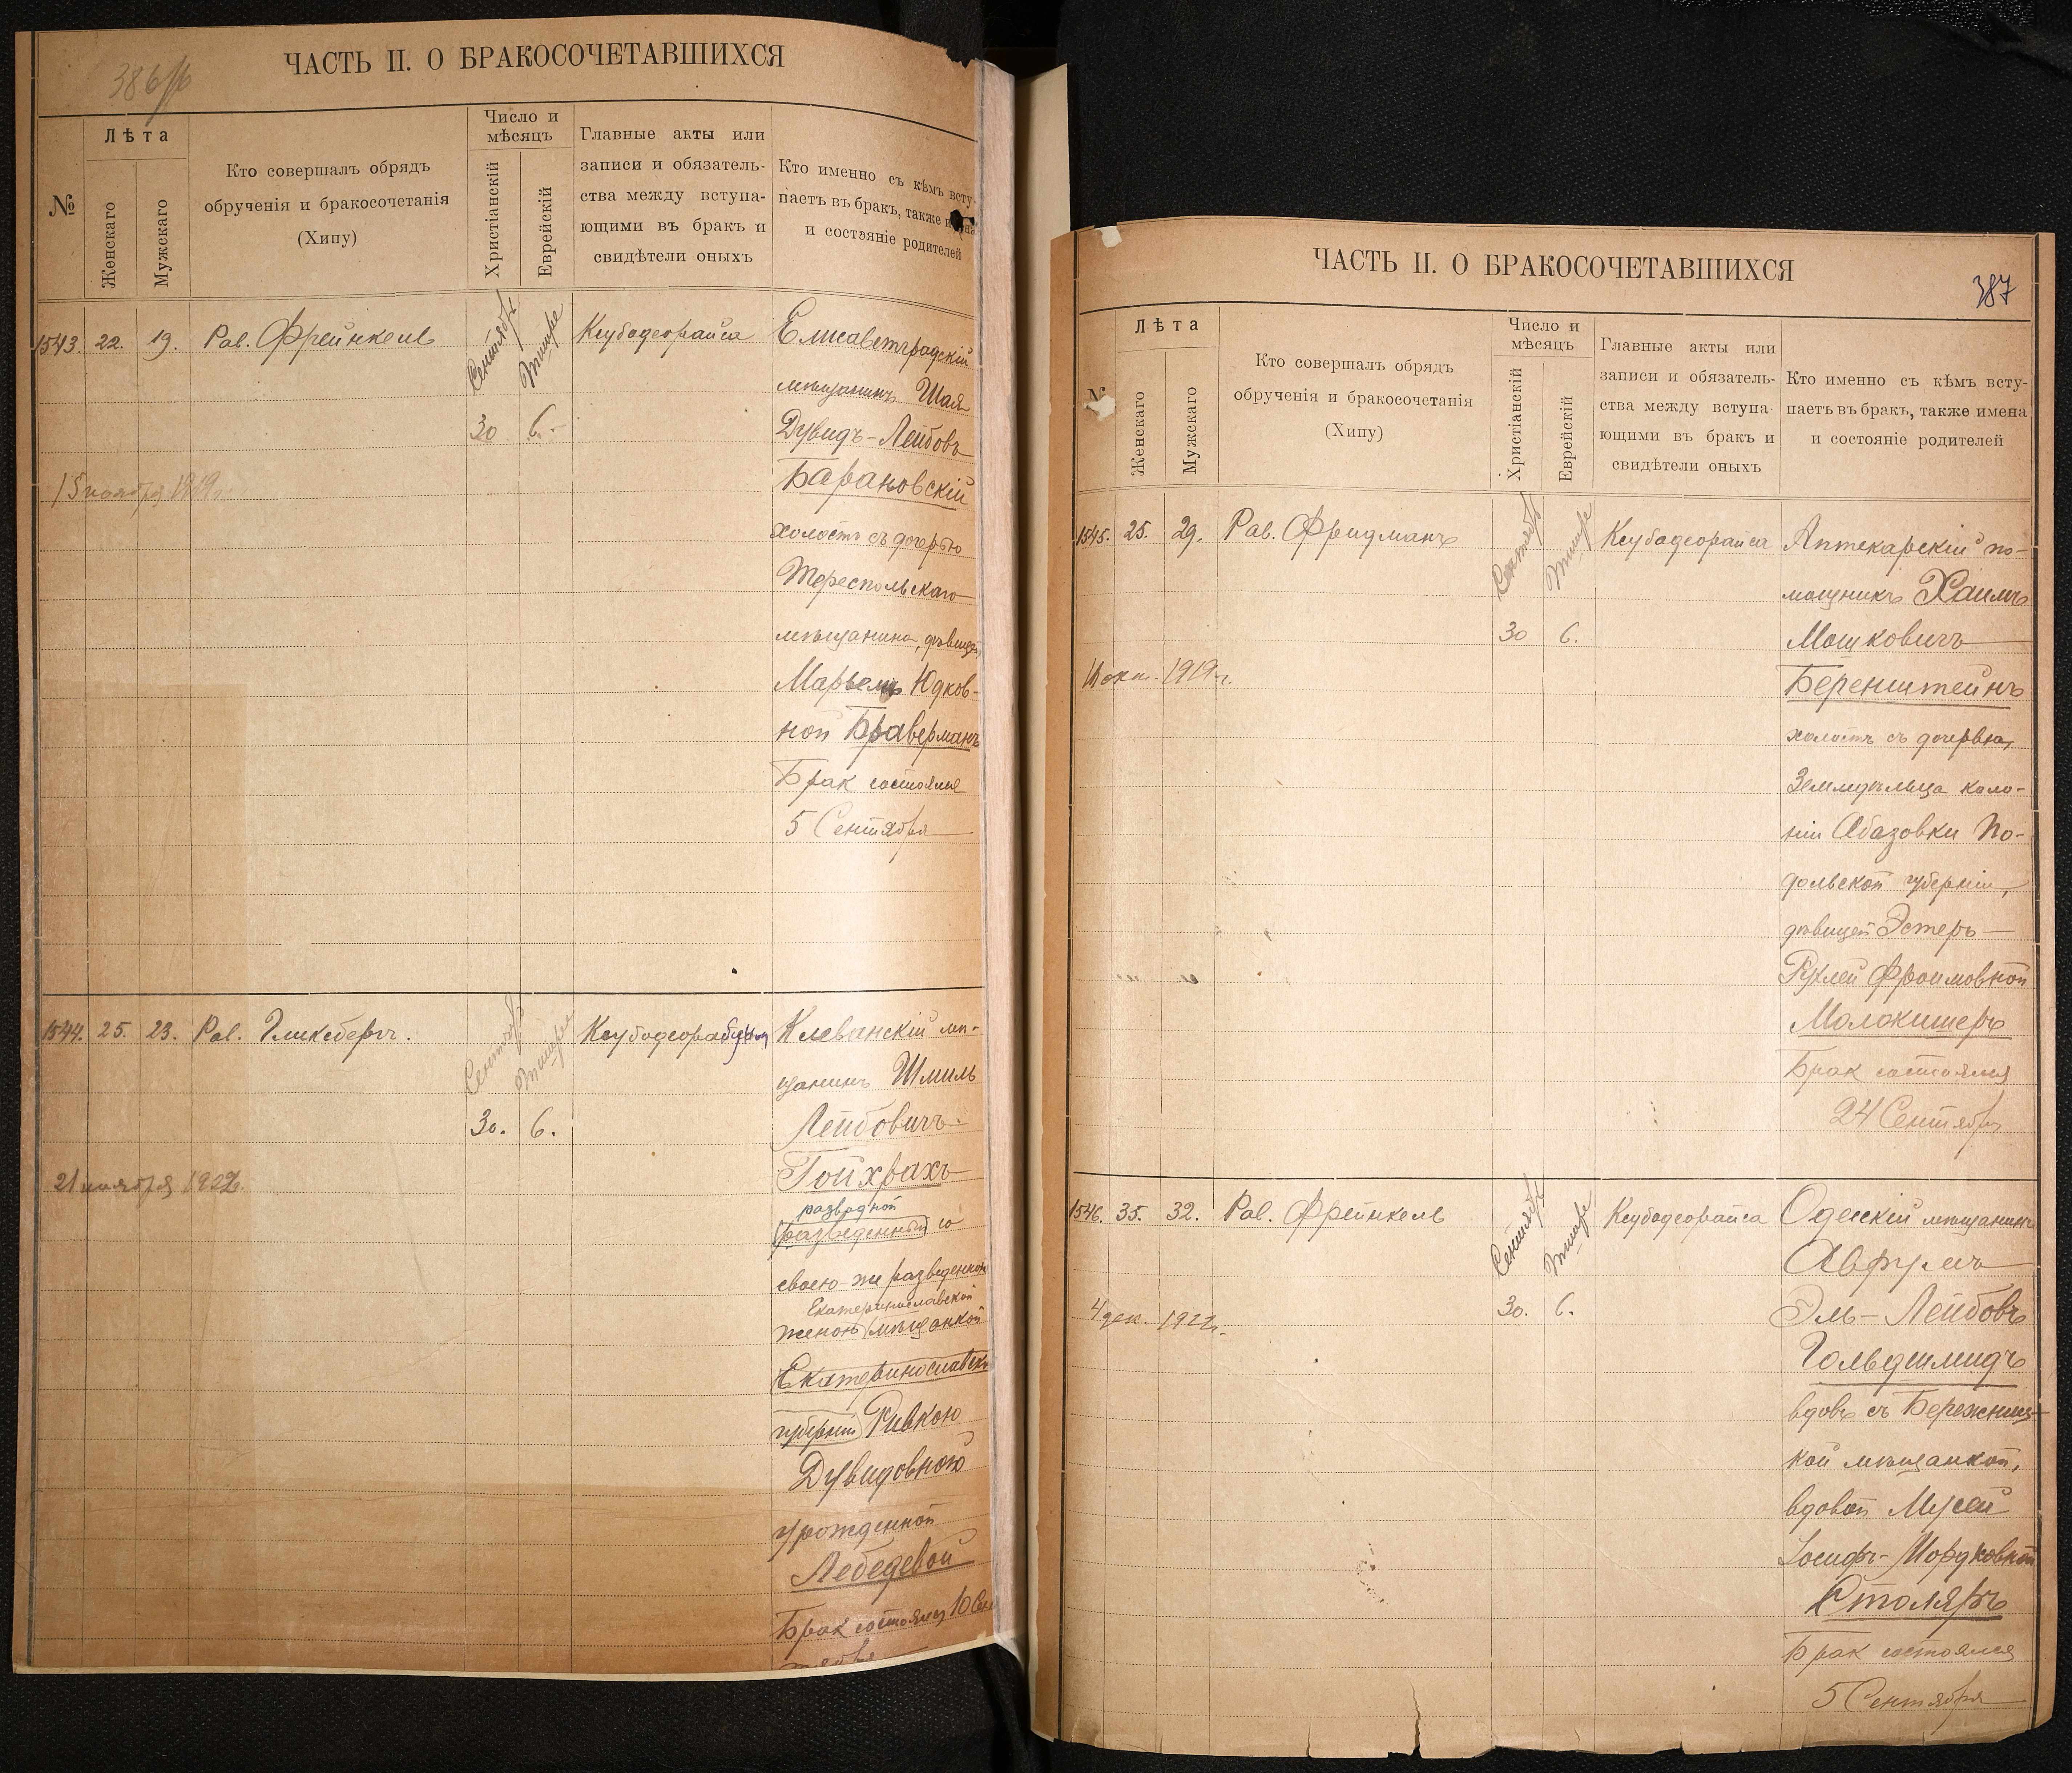 386/б
ЧАСТЬ II. О БРАКОСОЧЕТАВШИХСЯ
№
Лѣта
Женскаго
Мужскаго
Кто совершалъ обрядъ
обрученія и бракосочетанія
(Хипу)
Число и
мѣсяцъ
Христіанскій
Еврейскій
Главные акты или
записи и обязатель-
ства между вступа-
ющими въ бракъ и
свидѣтели оныхъ
Кто именно съ кѣмъ всту-
паетъ въ бракъ, также имена
и состояніе родителей
1543. 22. 19. Рав. Фрейнкель
Сентябрь Тишре
30 6.
Ксубодеорайса
15 ноября 1919г.
Елисаветградскій
мѣщанинъ Шая
Дувидъ-Лейбовъ
Барановскій
холостъ съ дочерью
Тереспольскаго
мѣщанина, дѣвицей
Марьемъ Юдков-
ной Браверманъ
Брак состоялся
5 Сентября
1544. 25. 23. Рав. Гликсбергъ.
Сентябрь Тишре
30. 6.
21 ноября 1922г.
Клеванскій мѣ-
щанинъ Шмиль
Лейбовичъ
Гойхвахъ
разводной
(разведенный) со
своею-же разведенной
Екатеринославской
женою (мѣщанкой
Екатеринославской
губерніи) Ривкою
Дувидовною
урожденной
Лебедевой
Брак состоялся 10 Сен-
тября
387
ЧАСТЬ II. О БРАКОСОЧЕТАВШИХСЯ
№
Лѣта
Женскаго
Мужскаго
Кто совершалъ обрядъ
обрученія и бракосочетанія
(Хипу)
Число и
мѣсяцъ
Христіанскій
Еврейскій
Главные акты или
записи и обязатель-
ства между вступа-
ющими въ бракъ и
свидѣтели оныхъ
Кто именно съ кѣмъ всту-
паетъ въ бракъ, также имена
и состояніе родителей
1545. 25. 29. Рав. Фридманъ
Сентябрь Тишре
30 6.
Ксубодеорайса
окт. 1919г.
Аптекарскій по-
мощникъ Хаимъ
Мошковичъ
Беренштейнъ
холостъ съ дочерью
Земледѣльца коло-
ніи Абазовки По-
дольской губерніи,
дѣвицей Эстеръ
Рухлей Фроимовной
Молокишеръ
Брак состоялся
24 Сентября
1546. 35. 32. Рав. Фрейнкель
Сентябрь Тишре
30. 6.
Ксубодеорайса
4 дек. 1922г.
Одесскій мѣщанинъ
Аврумъ
Эль-Лейбовъ
Гольдшмидъ
вдовъ съ Бережниц-
кой мѣщанкой,
вдовой Мусей
Іосифъ-Мордковной
Столяръ
Брак состоялся
5 Сентября